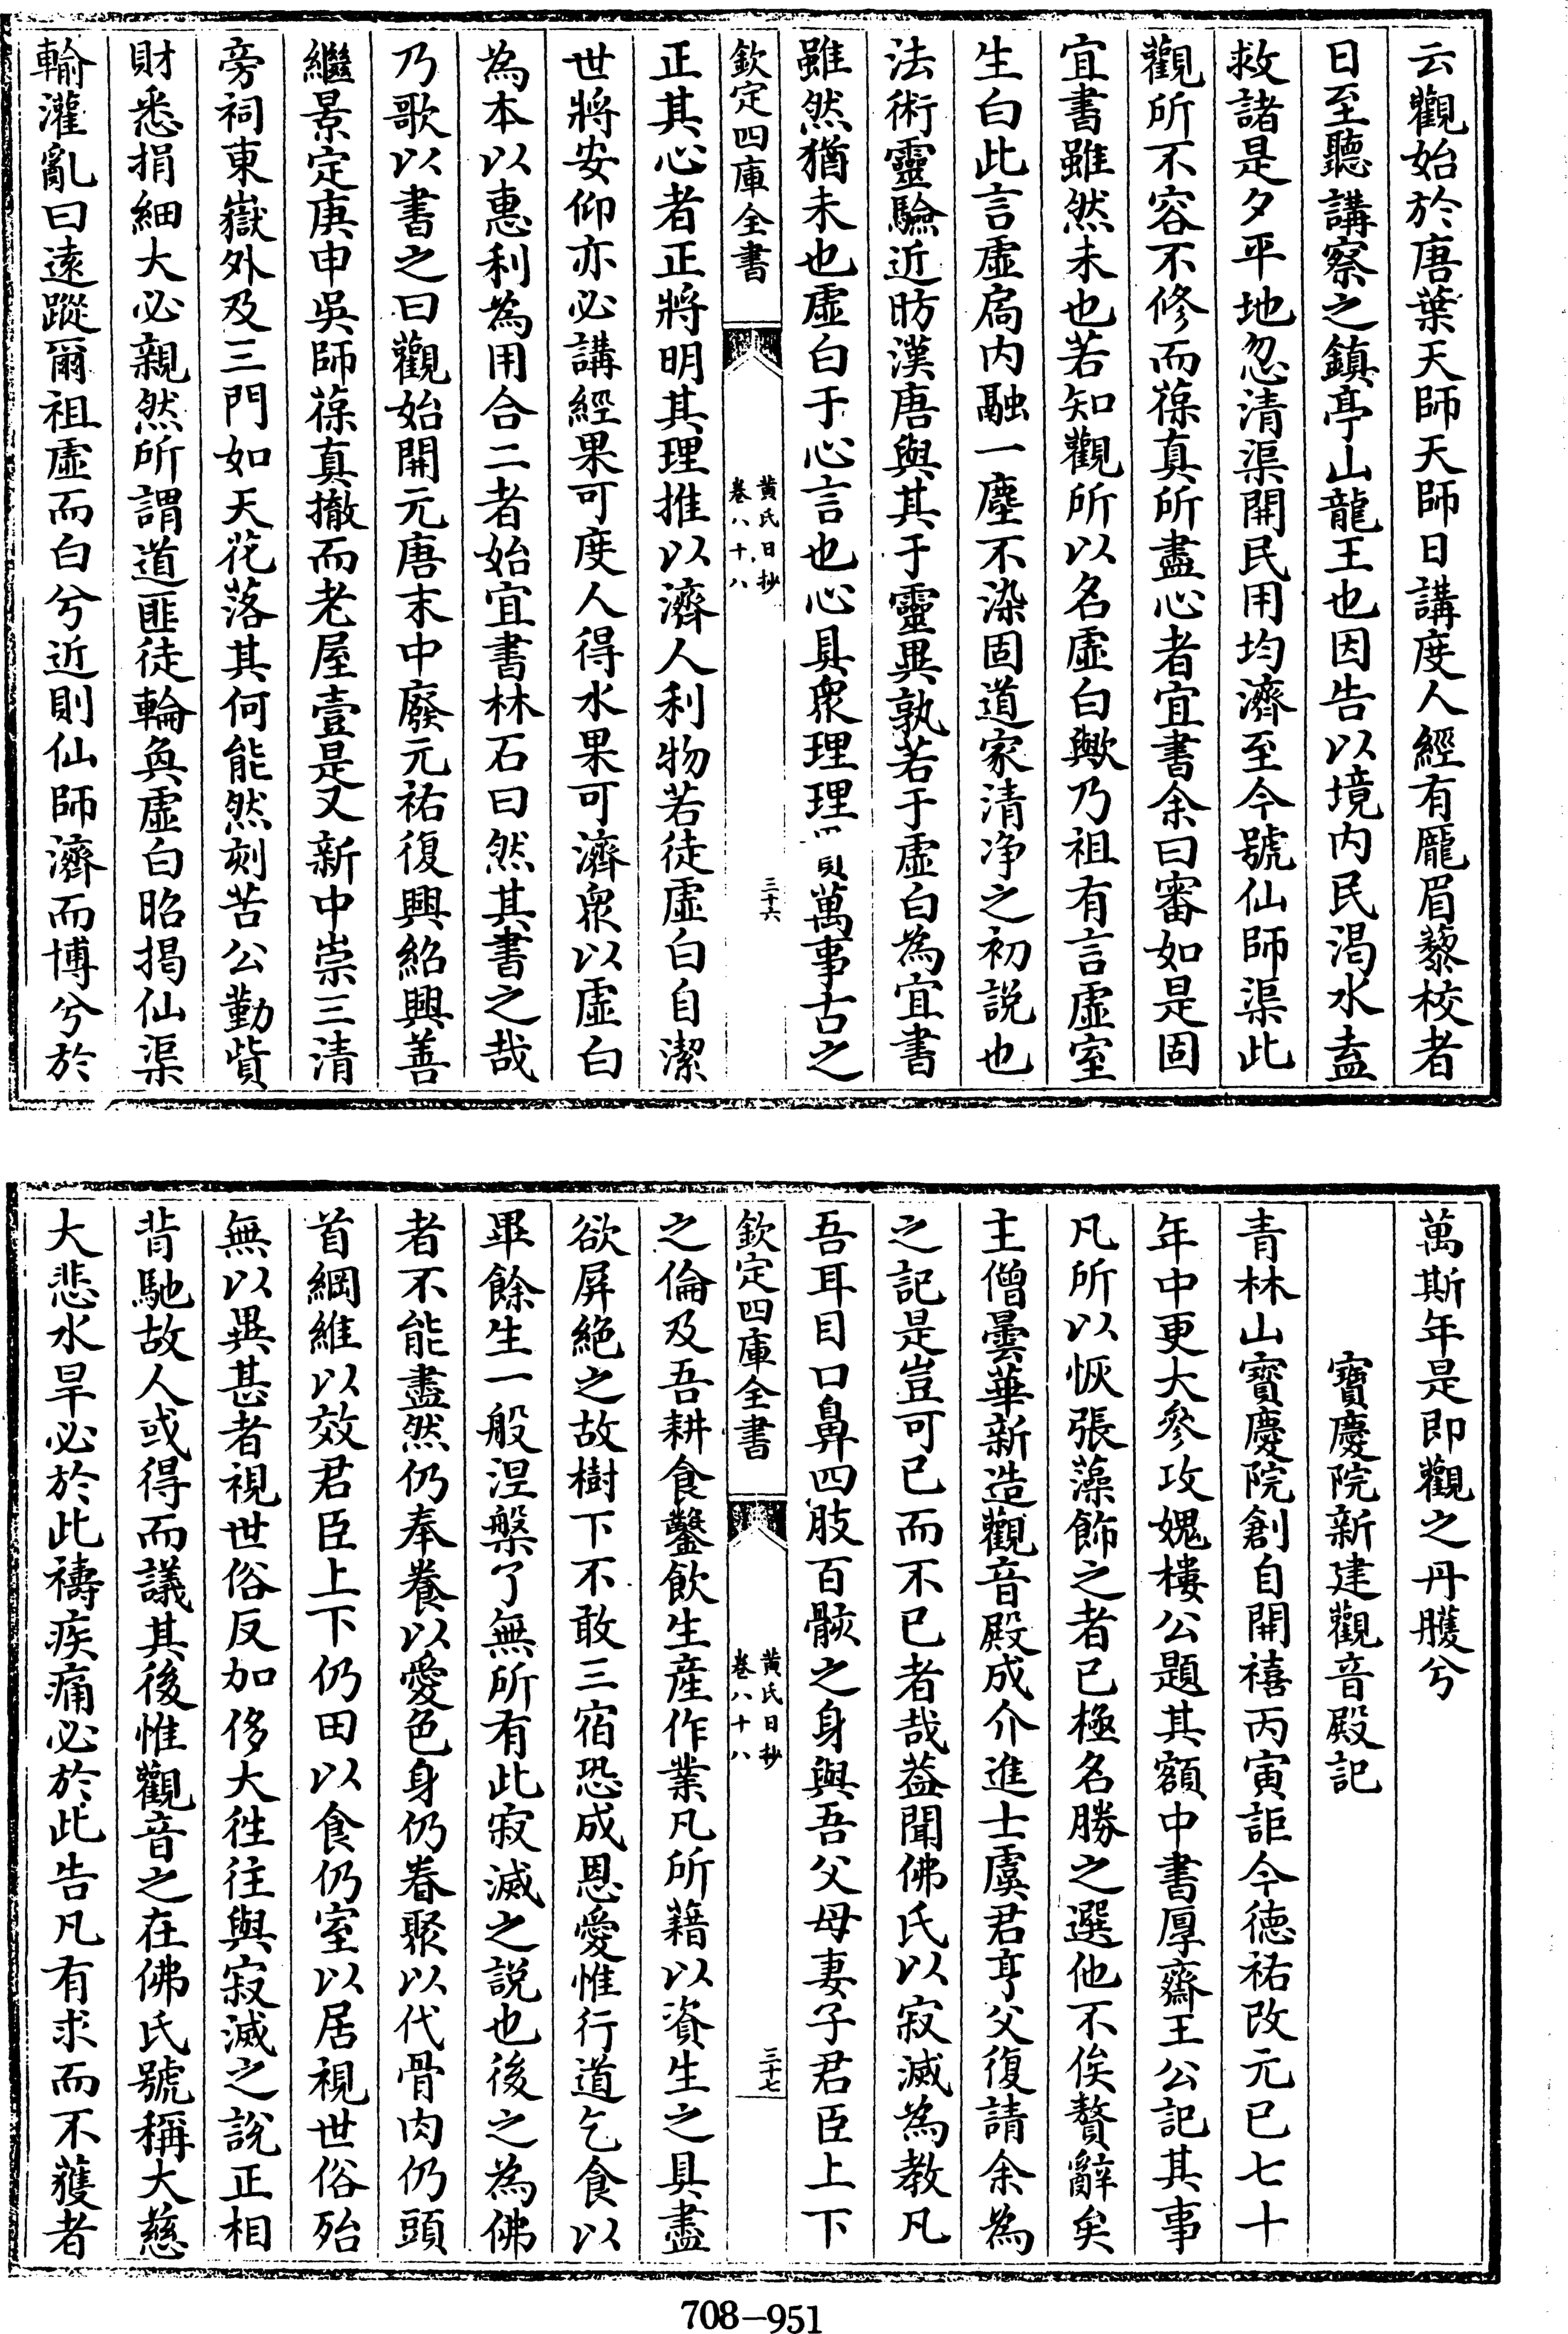 云觀始於唐葉天師天師日講度人經有龎眉藜杖者
日至聽講察之鎮亭山龍王也因告以境内民渴水盍
救諸是夕平地忽清渠開民用均濟至今號仙師渠此
觀所不容不修而葆真所盡心者宜書余曰審如是固
宜書雖然未也若知觀所以名虚白歟乃祖有言虚室
生白此言虚扄内融一塵不染固道家清净之初説也
法術靈驗近昉漢唐與其于靈異孰若于虚白為宜書
雖然猶未也虚白于心言也心具衆理理萬事古之
欽定四庫全書
黄氏日抄
卷八十八
三十六
正其心者正將明其理推以濟人利物若徒虚白自潔
世將安仰亦必講經果可度人得水果可濟衆以虚白
為本以惠利為用合二者始宜書林石曰然其書之哉
乃歌以書之曰觀始開元唐末中廢元祐復興紹興善
繼景定庚申吳師葆真撤而老屋壹是又新中崇三清
旁祠東嶽外及三門如天花落其何能然刻苦公勤貲
財悉捐細大必親然所謂道匪徒輪奐虚白昭揭仙渠
輸灌亂曰遠蹤爾祖虚而白兮近則仙師濟而博兮於
萬斯年是即觀之丹雘兮
寶慶院新建觀音殿記
青林山寳慶院創自開禧丙寅詎今德祐改元已七十
年中更大參攻媿樓公題其額中書厚齋王公記其事
凡所以恢張藻飾之者已極名勝之選他不俟贅辭矣
主僧曇華新造觀音殿成介進士虞君亨父復請余為
之記是豈可已而不已者哉葢聞佛氏以寂滅為教凡
吾耳目口鼻四肢百骸之身與吾父母妻子君臣上下
欽定四庫全書
黄氏日抄
卷八十八
三十七
之倫及吾耕食鑿飲生産作業凡所藉以資生之具盡
欲屏絶之故樹下不敢三宿恐成恩愛惟行道乞食以
畢餘生一般湼槃了無所有此寂滅之説也後之為佛
者不能盡然仍奉養以愛色身仍眷聚以代骨肉仍頭
首綱維以效君臣上下仍田以食仍室以居視世俗殆
無以異甚者視世俗反加侈大徃往與寂滅之説正相
背馳故人或得而議其後惟觀音之在佛氏號稱大慈
大悲水旱必於此禱疾痛必於此告凡有求而不獲者
708-951